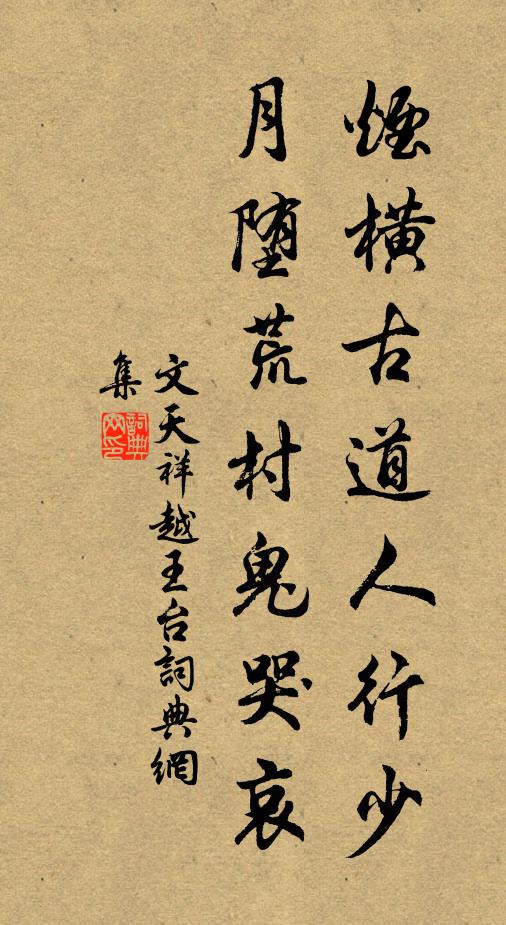 煙橫古道人行少
月堕荒村鬼哭哀
文天祥越王台詞典網
集
詞典
网印